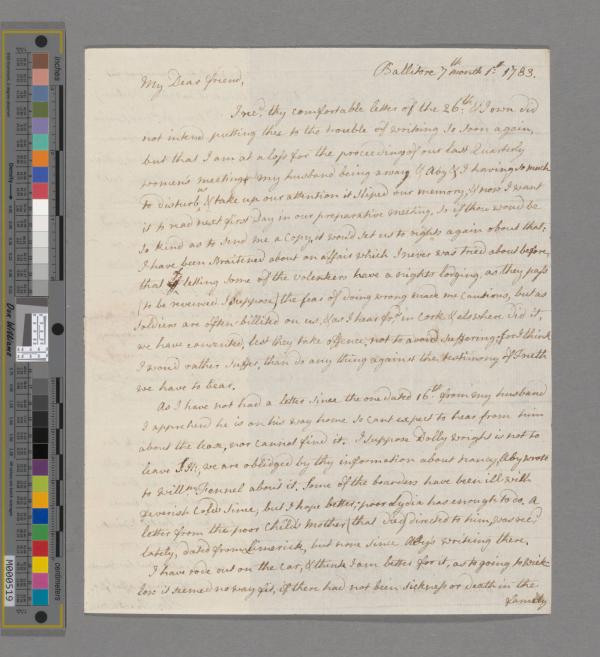 Ballitore 7th month 1st 1783.
My Dear friend,
I recd. thy comfortable letter of the 26th. & I own did
not intend putting thee to the trouble of writing so soon again,
but that I am at a loss for the proceeding of our last Quarterly
women's meeting & my husband being away & Aby & I having so much
to disturb as & take up our attention it sliped our memory, & now I want
it to read next first Day in our preparative meeting, so if thou would be
so kind as to send me a Copy, it would set us to rights again about that;
I have been straitened about an affair which I never was tried about before,
that of letting some of the volenteers have a nights lodging, as they pass
(to be reviewed I suppose) the fear of doing wrong made me cautious, but as
soldiers are often billited on us, & as I hear frds in Cork & elswhere did it,
we have consented, lest they take offence, not to avoid suffering; for I think
I would rather suffer, than do any thing against the testimony of Truth
we have to bear.
As I have not had a letter since the one dated 16th from my husband
I apprehend he is on his way home so cant expect to hear from him
about the lease, nor cannot find it. I suppose Dolly Wright is not to
leave we are obliedged by thy information about nancy, Aby wrote
to Willm. Fennel about it. Some of the boarders have been ill with
feverish Colds since, but I hope better; poor Lydia has enough to do, A
letter from the poor Child's Mother (that directed to him, was recd
lately, dated from Limerick, but none since Aby's writing there.
I have rode out on the Car, & think I am better for it, as to going to Wick-
low it seemed no way fit, if there had not been sickness or death in the
family
inches
centimetres
Don Williams
M000519